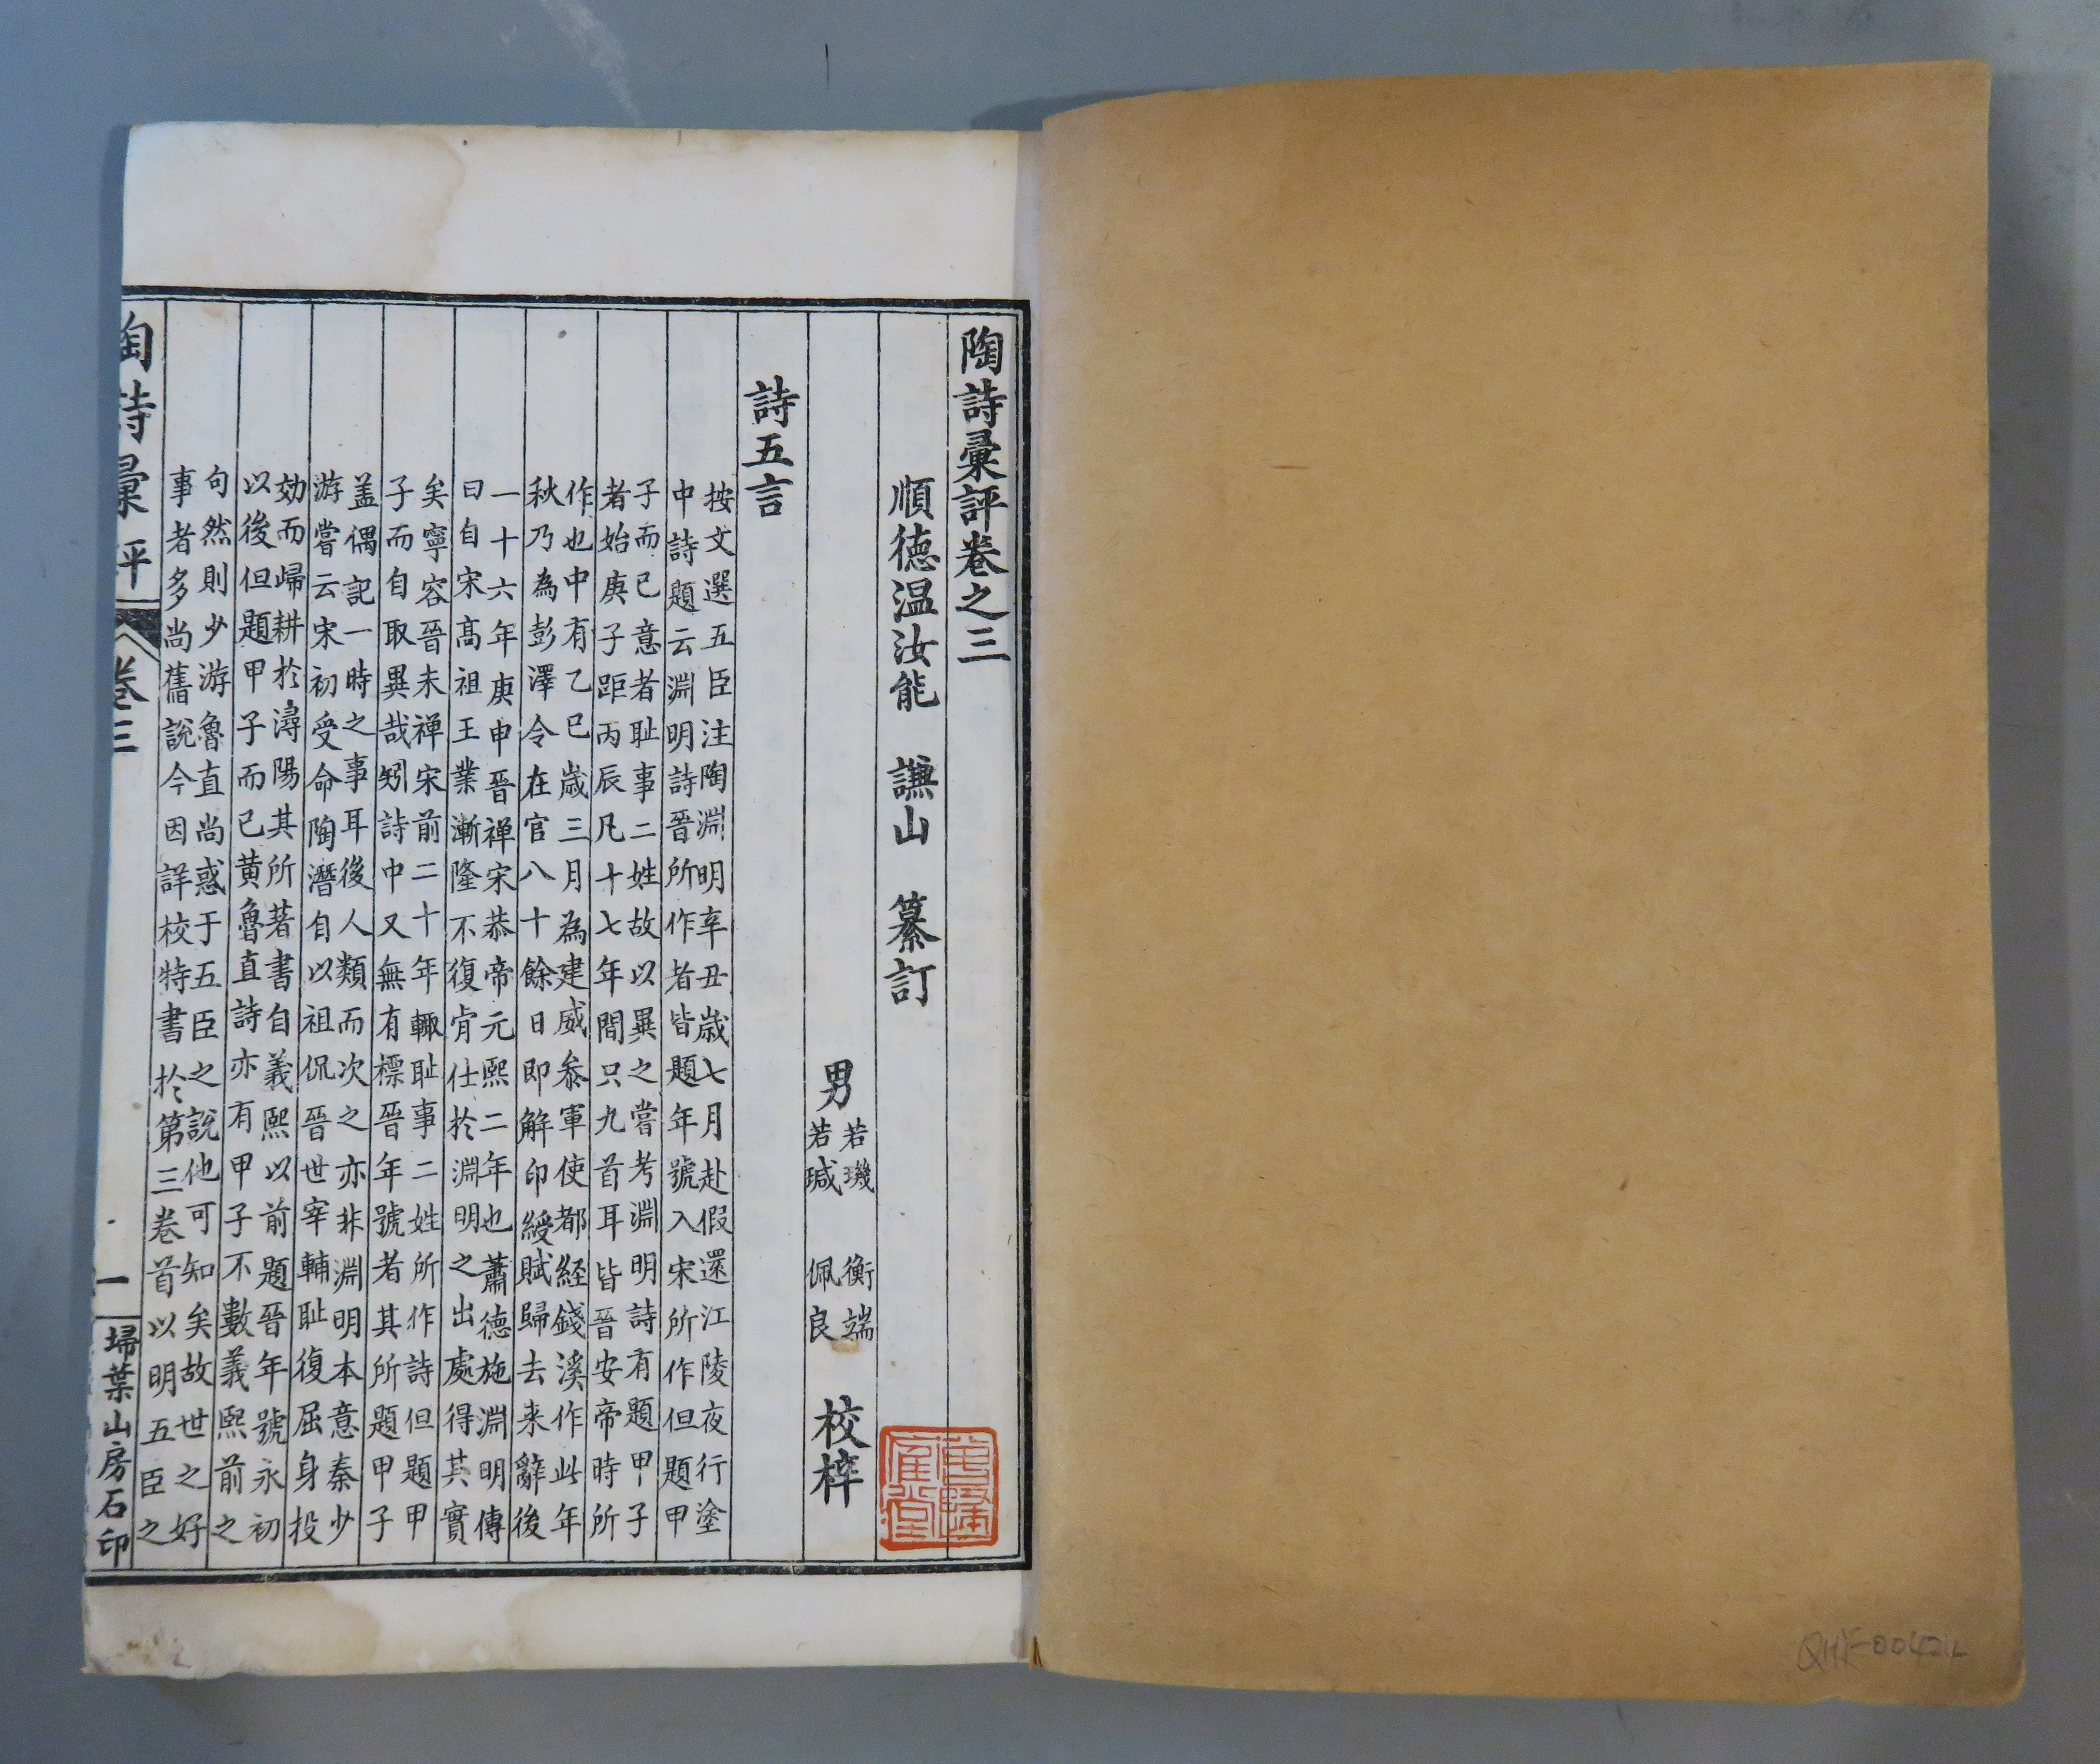 陶詩彙評卷之三
順德温汝能　謙山　纂訂
男
若璣　衡端
若瑊　佩良
校梓
詩五言
按文選五臣注陶淵明辛丑歲七月赴假還江陵夜行塗
中詩題云淵明詩晉所作者皆題年號入宋所作但題甲
子而已意者耻事二姓故以異之嘗考淵明詩有題甲子
者始庚子距丙辰凡十七年間只九首耳皆晉安帝時所
作也中有乙巳歲三月為建威參軍使都經錢溪作此年
秋乃為彭澤令在官八十餘日即解印綬賦歸去来辭後
一十六年庚申晉禪宋恭帝元熙二年也蕭德施淵明傳
曰自宋髙祖王業漸隆不復肯仕於淵明之出處得其實
矣寧容晉未禅宋前二十年輙耻事二姓所作詩但題甲
子而自取異哉矧詩中又無有標晉年號者其所題甲子
盖偶記一時之事耳後人類而次之亦非淵明本意秦少
游嘗云宋初受命陶潛自以祖侃晉世宰輔耻復屈身投
効而歸耕於潯陽其所著書自義熙以前題晉年號永初
以後但題甲子而已黄魯直詩亦有甲子不數義熙前之
句然則少游魯直尚惑于五臣之說他可知矣故世之好
事者多尚舊說今因詳校特書於第三卷首以明五臣之
陶詩彙評
卷三
一
埽葉山房石印